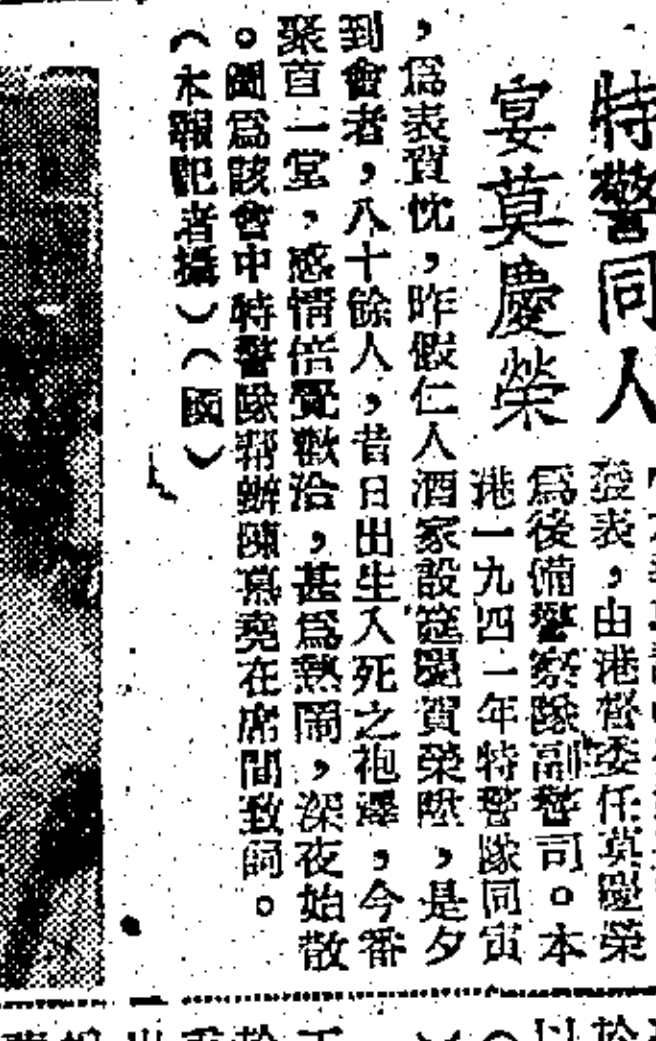 特警同人
宴莫慶榮
發表,由港督委任莫慶榮
爲後備警察隊副警司。本
港一九四一年特警隊同寅
,爲表賀忱,昨假仁人酒家設筵慶賀榮陞,是夕
到會者,八十餘人,昔日出生入死之袍澤,今番
聚首一堂,感情倍覺歡洽,甚爲熱鬧,深夜始散
。圖爲該會中特警隊幫辦陳 堯在席間致詞。
(本報記者攝)(國)